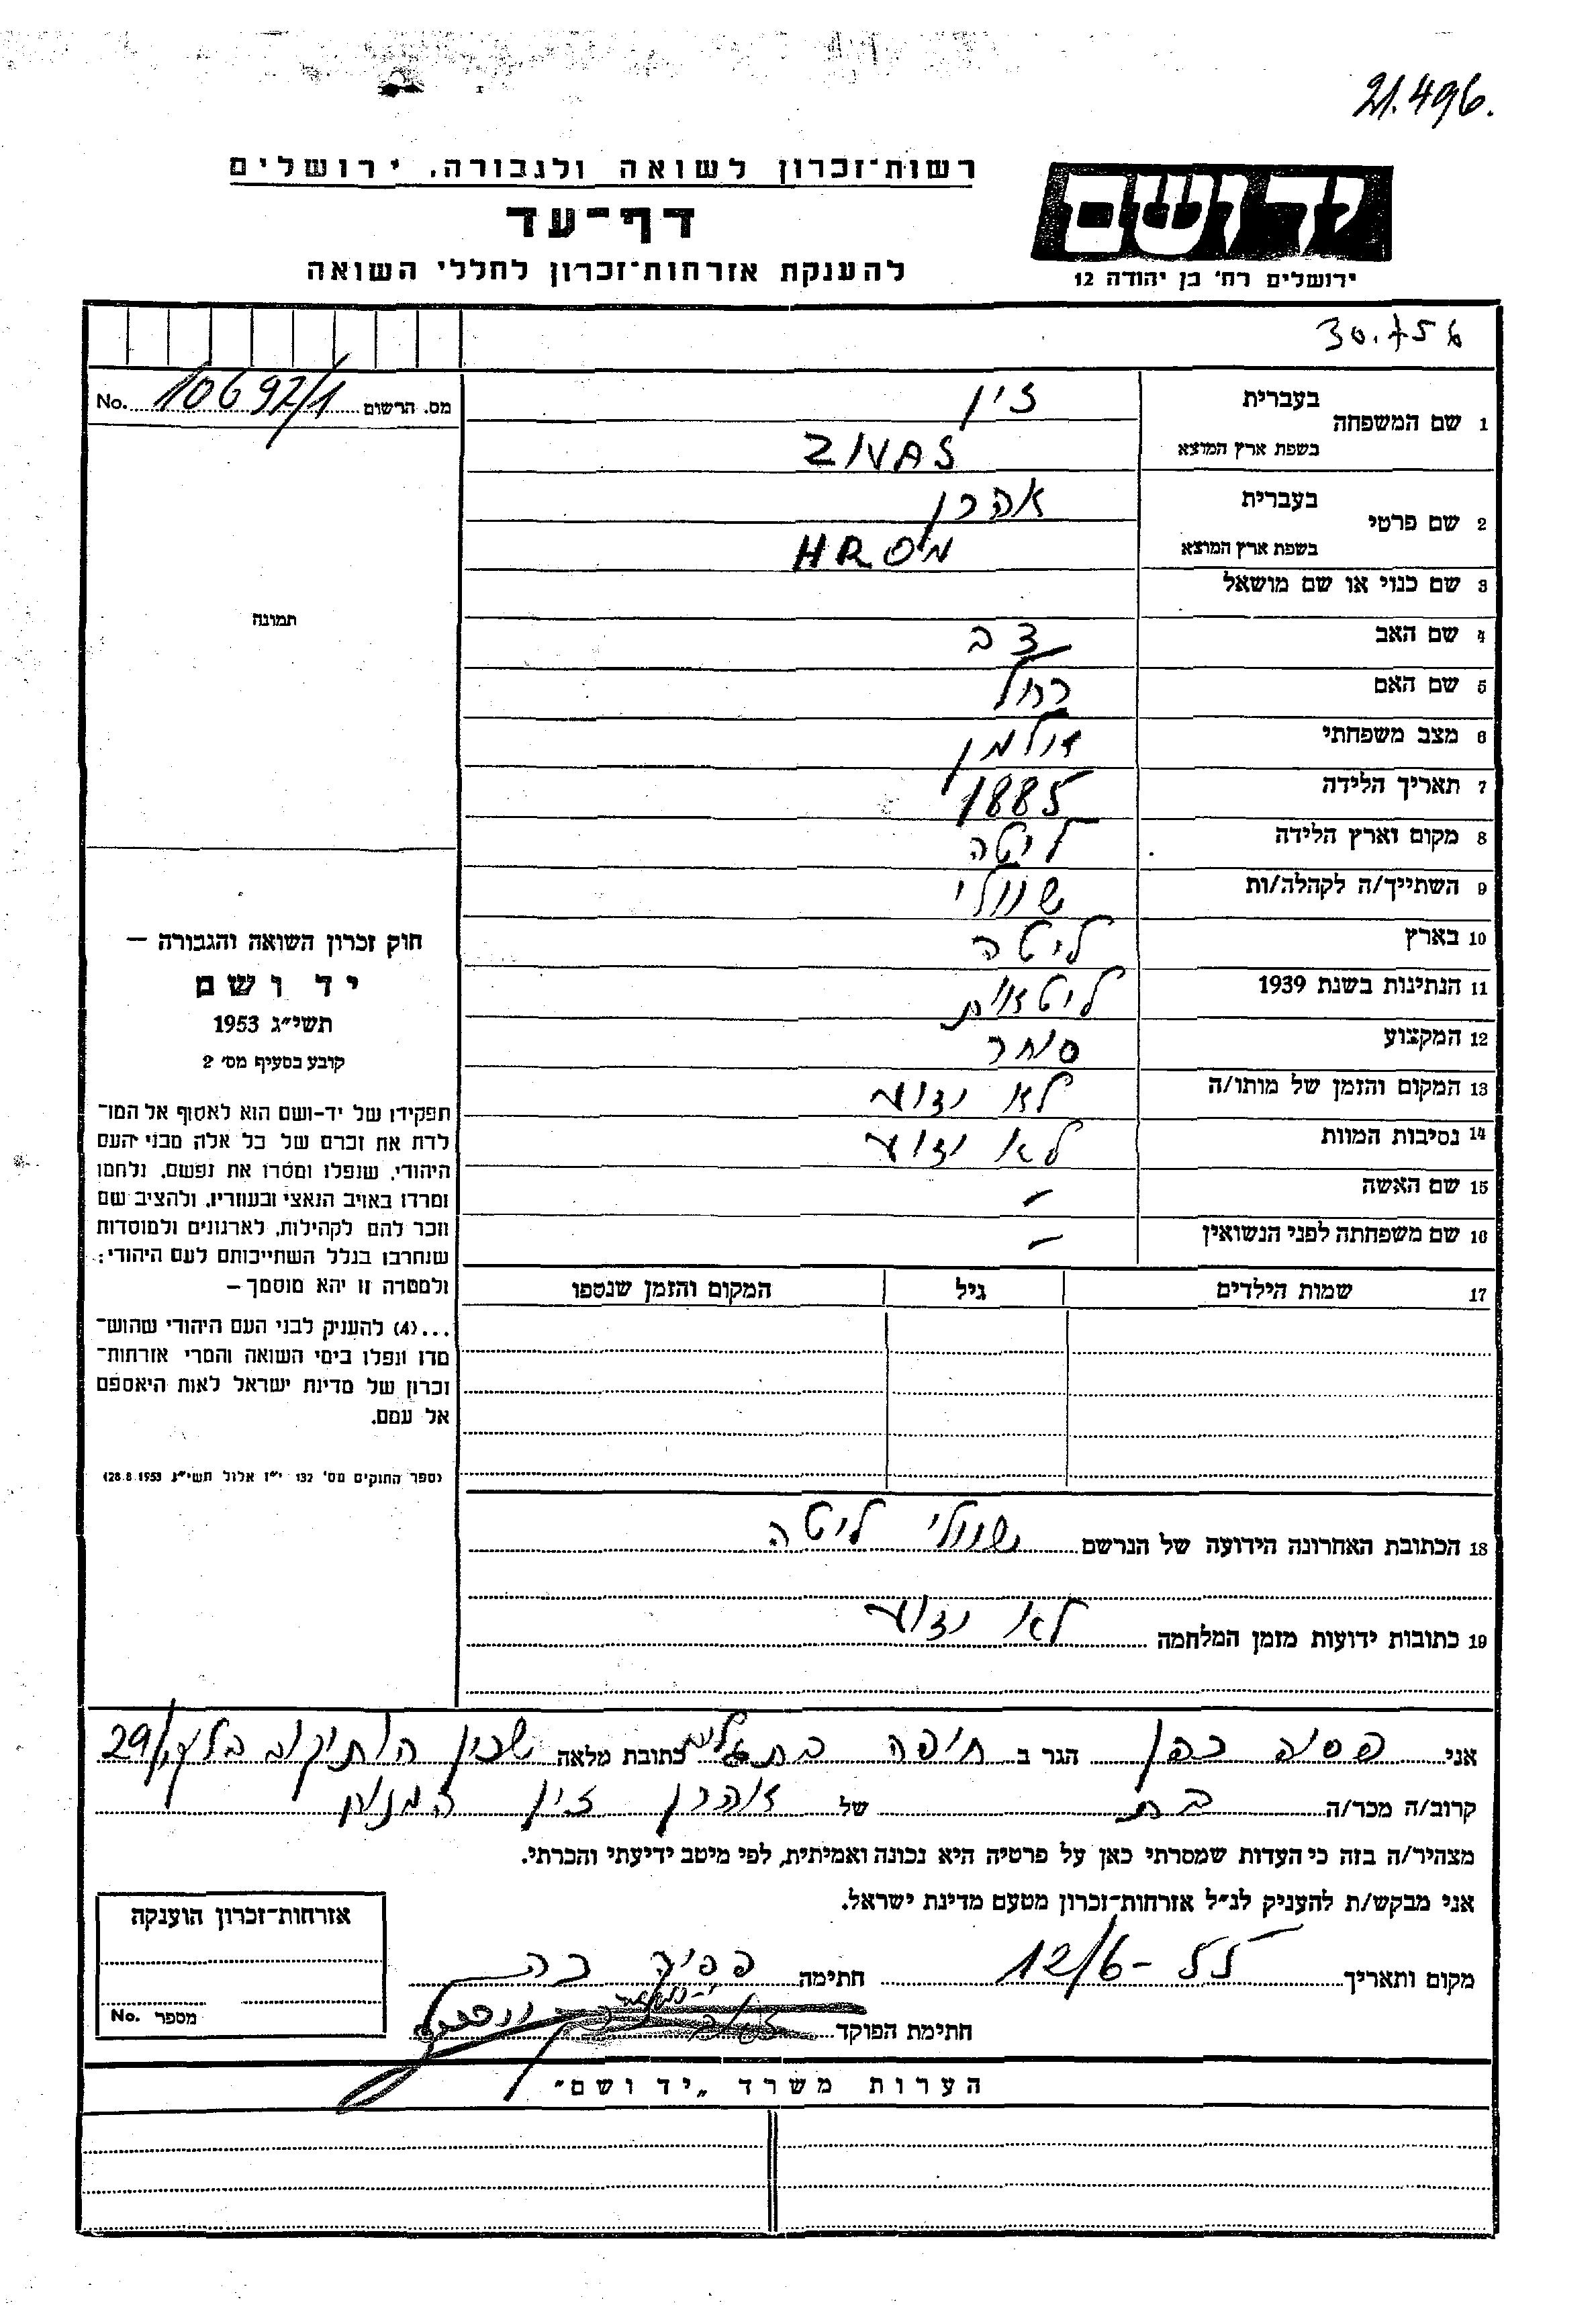 21.496.
רשות־זכרון לשואה ולגבורה, ירושלים
דף־עד
להענקת אזרחות־זכרון לחללי השואה
יד ושם
ירושלים רח' בן יהודה 12
מס. הרשום 10692/1 No.
תמונה
1 שם המשפחה
בעברית זיו
בשפת ארץ המוצא ZIVAS
2 שם פרטי
בעברית אהרן
בשפת ארץ המוצא
3 שם כנוי או שם מושאל
4 שם האב צבי
5 שם האם רחל
6 מצב משפחתי אלמן
7 תאריך הלידה 1885
8 מקום וארץ הלידה ליטה
9 השתייך/ה לקהלה/ות שוולי
10 בארץ ליטה
11 הנתינות בשנת 1939 ליטאית
12 המקצוע סוחר
13 המקום והזמן של מותו/ה לא ידוע
14 נסיבות המוות לא ידוע
15 שם האשה –
16 שם משפחתה לפני הנשואין –
17 שמות הילדים גיל המקום והזמן שנספו
18 הכתובת האחרונה הידועה של הנרשם שוולי ליטה
19 כתובות ידועות מזמן המלחמה לא ידוע
חוק זכרון השואה והגבורה –
יד ושם
תשי״ג 1953
קובע בסעיף מס׳ 2
תפקידו של יד-ושם הוא לאסוף אל המו־
לדת את זכרם של כל אלה מבני העם
היהודי, שנפלו ומסרו את נפשם, נלחמו
ומרדו באויב הנאצי ובעוזריו, ולהציב שם
וזכר להם לקהילות, לארגונים ולמוסדות
שנחרבו בגלל השתייכותם לעם היהודי;
ולמטרה זו יהא מוסמך –
...(4) להעניק לבני העם היהודי שהוש־
מדו ונפלו בימי השואה והמרי אזרחות־
זכרון של מדינת ישראל לאות היאספם
אל עמם.
(ספר החוקים מס׳ 132 י״ז אלול תשי״ג 28.8.1953)
אני פסיה כהן הגר ב חיפה בת גלים כתובת מלאה שכון הותיקים 29
קרוב/ה מכר/ה בת של אהרן זיו המנוח
מצהיר/ה בזה כי העדות שמסרתי כאן על פרטיה היא נכונה ואמיתית, לפי מיטב ידיעתי והכרתי.
אני מבקש/ת להעניק לנ״ל אזרחות־זכרון מטעם מדינת ישראל.
מקום ותאריך 12/6- חתימה פסיה כהן
חתימת הפוקד
אזרחות־זכרון הוענקה
מספר No.
הערות משרד „יד ושם״